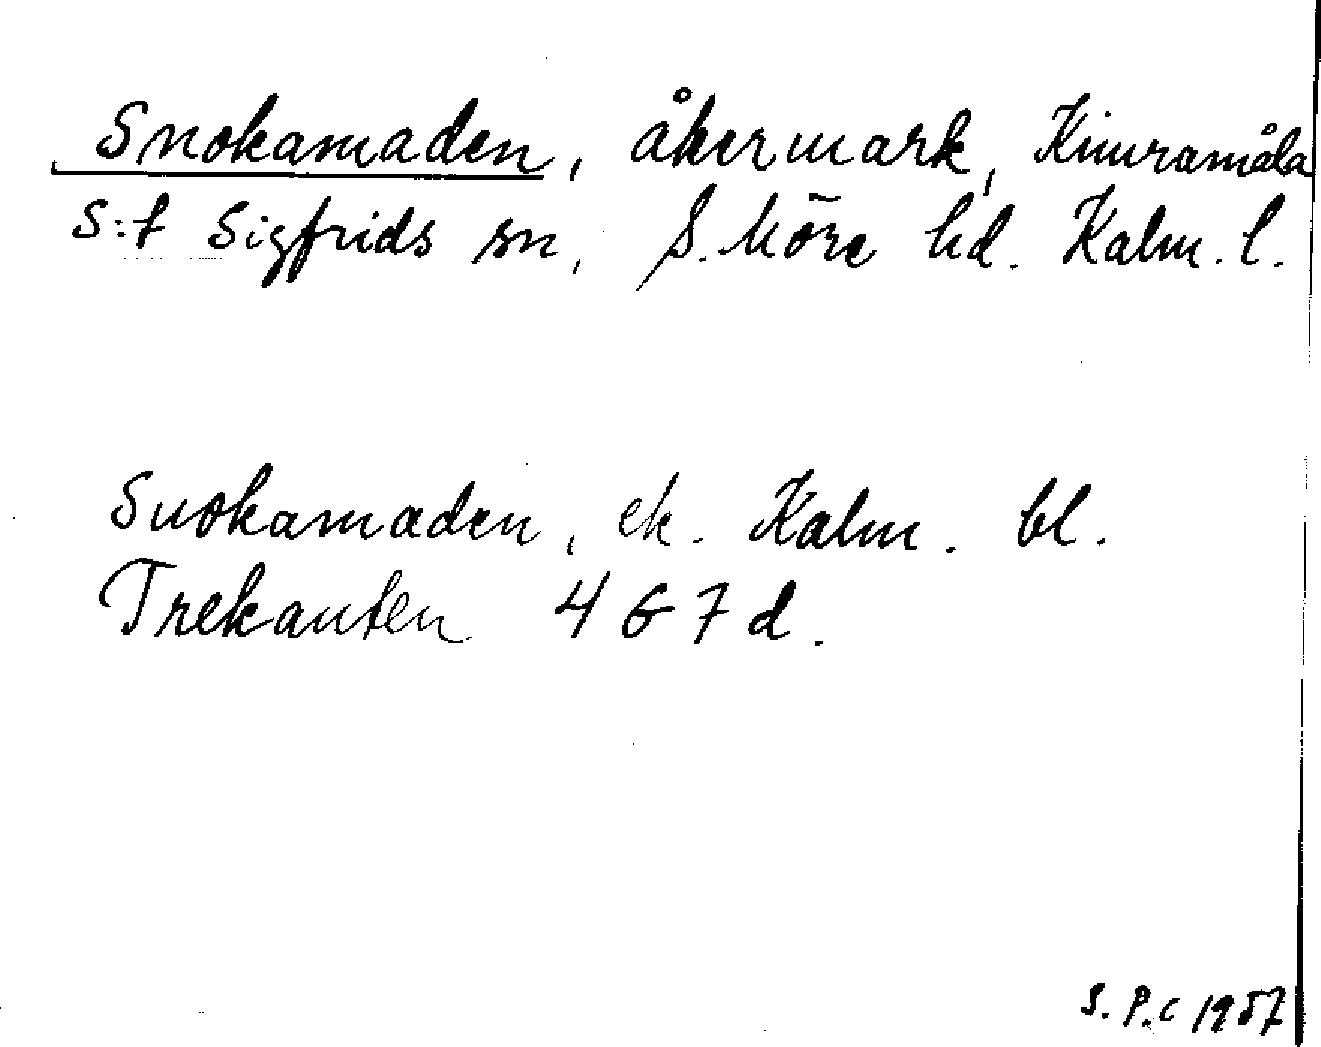 Snokamaden, åkermark, Kimramåla
S:t Sigfrids sn, S. Möre hd. Kalm. l.
Snokamaden, ek. Kalm. bl.
Trekanten 4 G 7 d.
S. P. C 1957